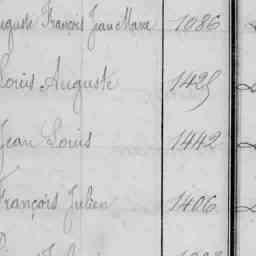 Auguste François Jean Marie 1086
Louis Auguste 1425
Jean Louis 1442
François Julien 1406